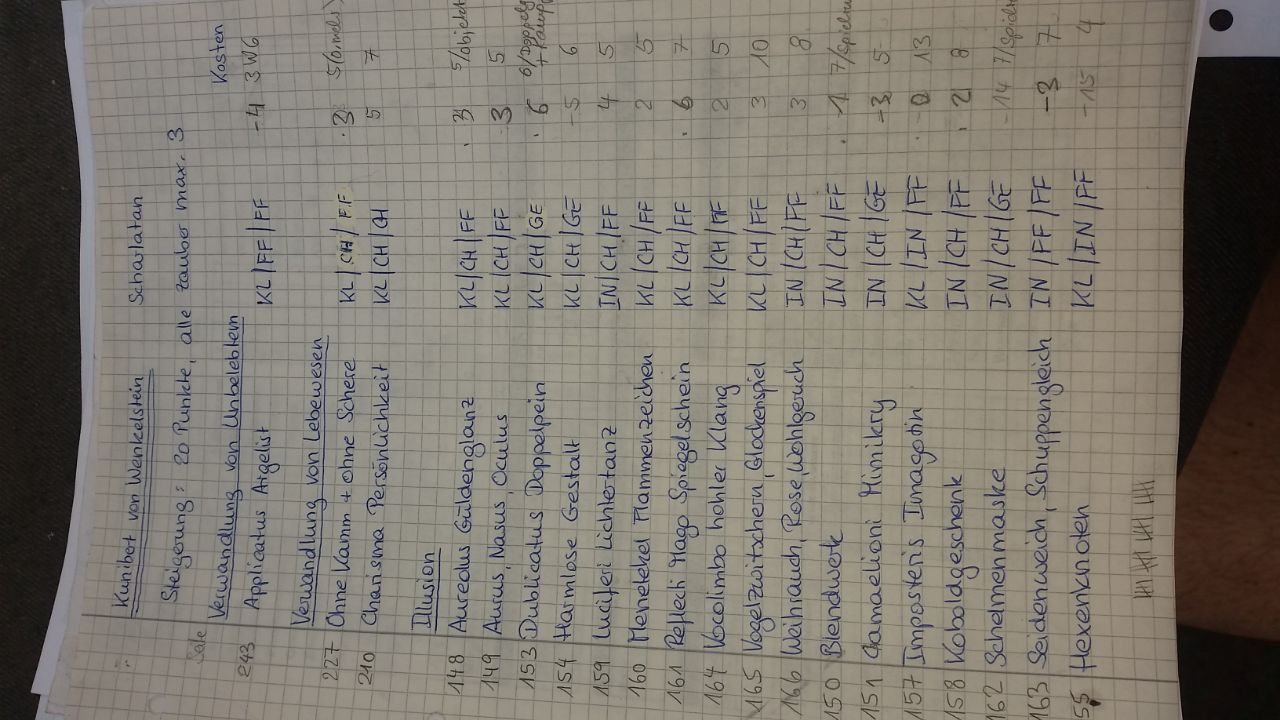 Kunibot von Wenkelstein Scharlatan
Steigerung: 20 Punkte, alle Zauber max. 3
Seite Verwandlung von Unbelebtem Kosten
243 Applicatus Argelist KL/FF/FF -4 3W6
Verwandlung von Lebewesen
227 Ohne Kamm + ohne Schere KL/CH/FF 3
210 Charisma Persönlichkeit KL/CH/CH 5 7
Illusion
148 Aureolus Güldenglanz KL/CH/FF 3 5/Objekt
149 Aurus, Nasus, Oculus KL/CH/FF 3 5
153 Dublicatus Doppelpein KL/CH/GE 6
154 Harmlose Gestalt KL/CH/GE -5 6
159 Luciferi Lichtertanz IN/CH/FF 4 5
160 Menetekel Flammenzeichen KL/CH/FF 2 5
161 Reflecti Mago Spiegelschein KL/CH/FF 6 7
164 Vocolimbo hohler Klang KL/CH/FF 2 5
165 Vogelzwitschern, Glockenspiel KL/CH/FF 3 10
166 Weihrauch, Rose, Wohlgeruch IN/CH/FF 3 8
150 Blendwerk IN/CH/FF
151 Chamaelioni Mimikry IN/CH/GE -3 5
157 Impostoris Imagotin KL/IN/FF 13
158 Koboldgeschenk IN/CH/FF 2 8
162 Schelmenmaske IN/CH/GE -14
163 Seidenweich, Schuppengleich IN/FF/FF -3 7
55 Hexenknoten KL/IN/FF -15 4